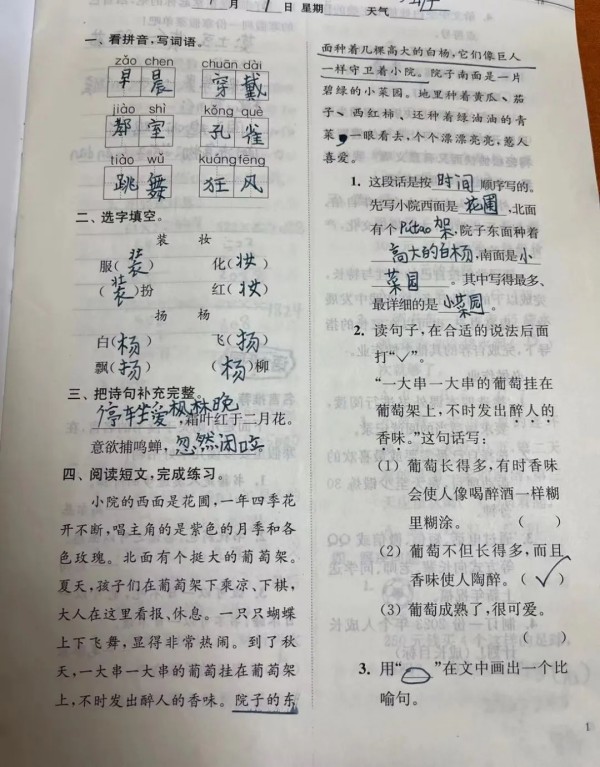 月 日 星期 天气
一、看拼音,写词语。
zǎo chen chuān dài
早晨 穿戴
jiào shì kǒng què
教室 孔雀
tiào wǔ kuáng fēng
跳舞 狂风
二、选字填空。
装 妆
服(装) 化(妆)
(装)扮 红(妆)
扬 杨
白(杨) 飞(扬)
飘(扬) (杨)柳
三、把诗句补充完整。
停车坐爱枫林晚,霜叶红于二月花。
意欲捕鸣蝉,忽然闭口
四、阅读短文,完成练习。
小院的西面是花圃,一年四季花
开不断,唱主角的是紫色的月季和各
色玫瑰。北面有个挺大的葡萄架。
夏天,孩子们在葡萄架下乘凉、下棋,
大人在这里看报、休息。一只只蝴蝶
上下飞舞,显得非常热闹。到了秋
天,一大串一大串的葡萄挂在葡萄架
上,不时发出醉人的香味。院子的东
面种着几棵高大的白杨,它们像巨人
一样守卫着小院。院子南面是一片
碧绿的小菜园。地里种着黄瓜、茄
子、西红柿、还种着绿油油的青
菜,一眼看去,个个漂漂亮亮,惹人
喜爱。
1. 这段话是按时间顺序写的。
先写小院西面是花圃,北面
有个Pútao架,院子东面种着
高大的白杨,南面是小
菜园。其中写得最多、
最详细的是小菜园。
2. 读句子,在合适的说法后面
打“✓”。
“一大串一大串的葡萄挂在
葡萄架上,不时发出醉人的
香味。”这句话写:
(1) 葡萄长得多,有时香味
会使人像喝醉酒一样糊
里糊涂。 ( )
(2) 葡萄不但长得多,而且
香味使人陶醉。(✓)
(3) 葡萄成熟了,很可爱。
( )
3. 用“ ”在文中画出一个比
喻句。
1